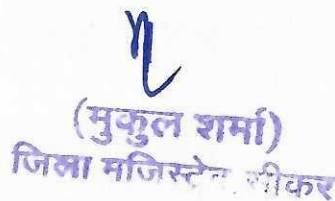 (मुकुल शर्मा)
जिला मजिस्ट्रेट सीकर